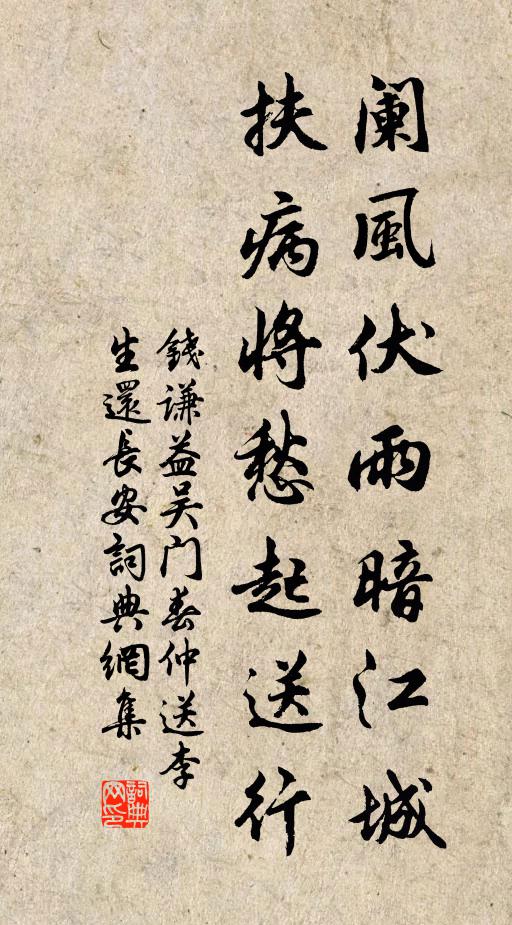 阑風伏雨暗江城
扶病将愁起送行
錢谦益吴门春仲送李
生還長安詞典網集
詞典
网印